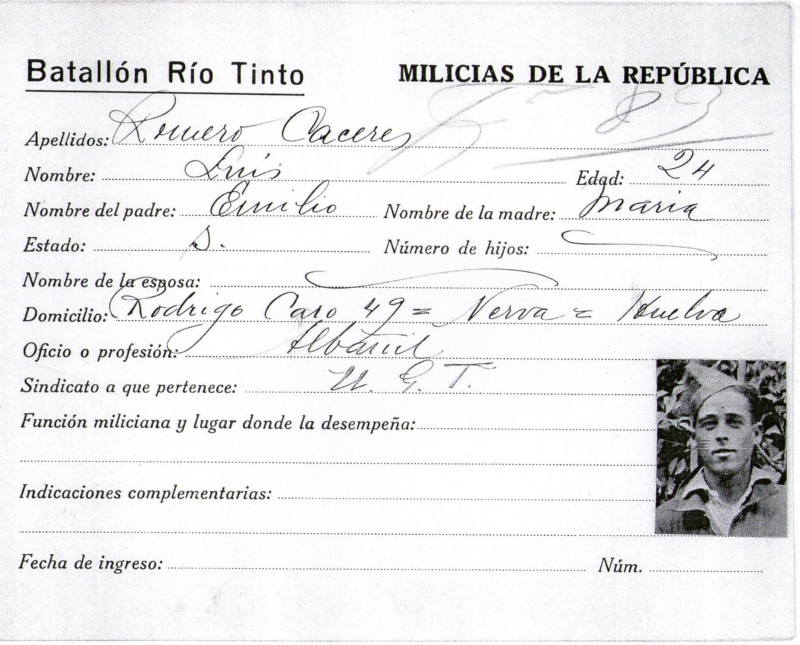 Batallón Río Tinto MILICIAS DE LA REPÚBLICA
83
Apellidos: Romero Caceres
Nombre: Luís Edad: 24
Nombre del padre: Emilio Nombre de la madre: Maria
Estado: S. Número de hijos:
Nombre de la esposa:
Domicilio: Rodrigo Caro 49 = Nerva = Huelva
Oficio o profesión: Albañil
Sindicato a que pertenece: U. G. T.
Función miliciana y lugar donde la desempeña:
Indicaciones complementarias:
Fecha de ingreso: Núm.